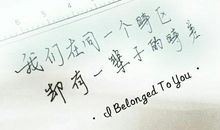 我们在同一个时区
却有一辈子的时差
• I Belonged To You •